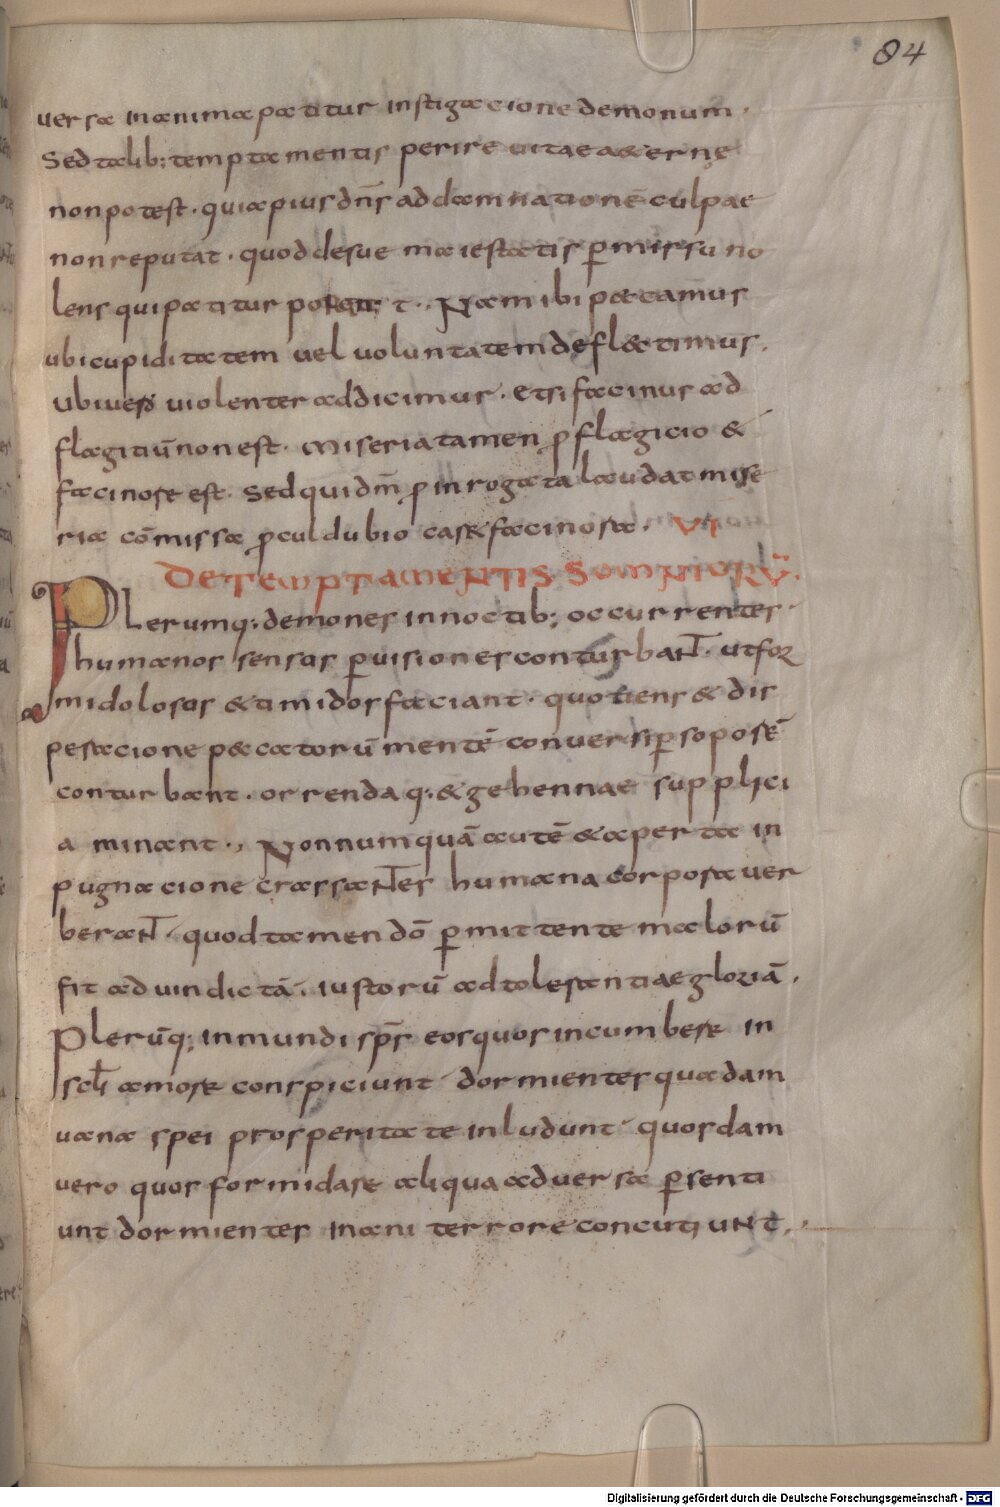 84
versa in anima patitur instigacione demonum·
Sed talib; temptamentis perire vitae aeterne
non potest· quia pius dn̄s ad damnationē culpae
non reputat· quod de sue maiestatis p̱missu no
lens qui patitur t·, Nam ibi peccamus
ubi cupiditatem vel voluntatem deflectimus,
Ubi vero violenter addicimur· etsi facinus ad
flagitiū non est· miseria tamen ꝓ flagicio &
facinore est· Sed quidm̄ ꝓ inrogata laudat mise
ria cōmissa ꝓcul dubio caret facinora· VI
DE TEMPTAMENTIS SOMNIORŪ·
Plerumq; demones in noctib; occurrentes·
humanos sensus p̱ visiones conturbant· ut for
midolosus & timidos faciant· quotiens & dis
peracione peccatorū mentē conversi p̱ soporē
conturbant· orrendaq; & gehennae supplici
a minant·, Nonnumquā autē & aperta in
pugnacione crassantes humana corpora ver
berant· quod tamen dō p̱mittente malorū
fit ad vindictā· iustorū ad tolerantiae gloriā,
Plerūq; inmundi sp̄s eos quos incumbere in
scl̄i amore conspiciunt· dormientes quadam
vana spei prosperitate inludunt· quosdam
vero quos formidare aliqua adversa p̱senti
unt dormientes inani terrore concutiunt·,
Digitalisierung gefördert durch die Deutsche Forschungsgemeinschaft - DFG